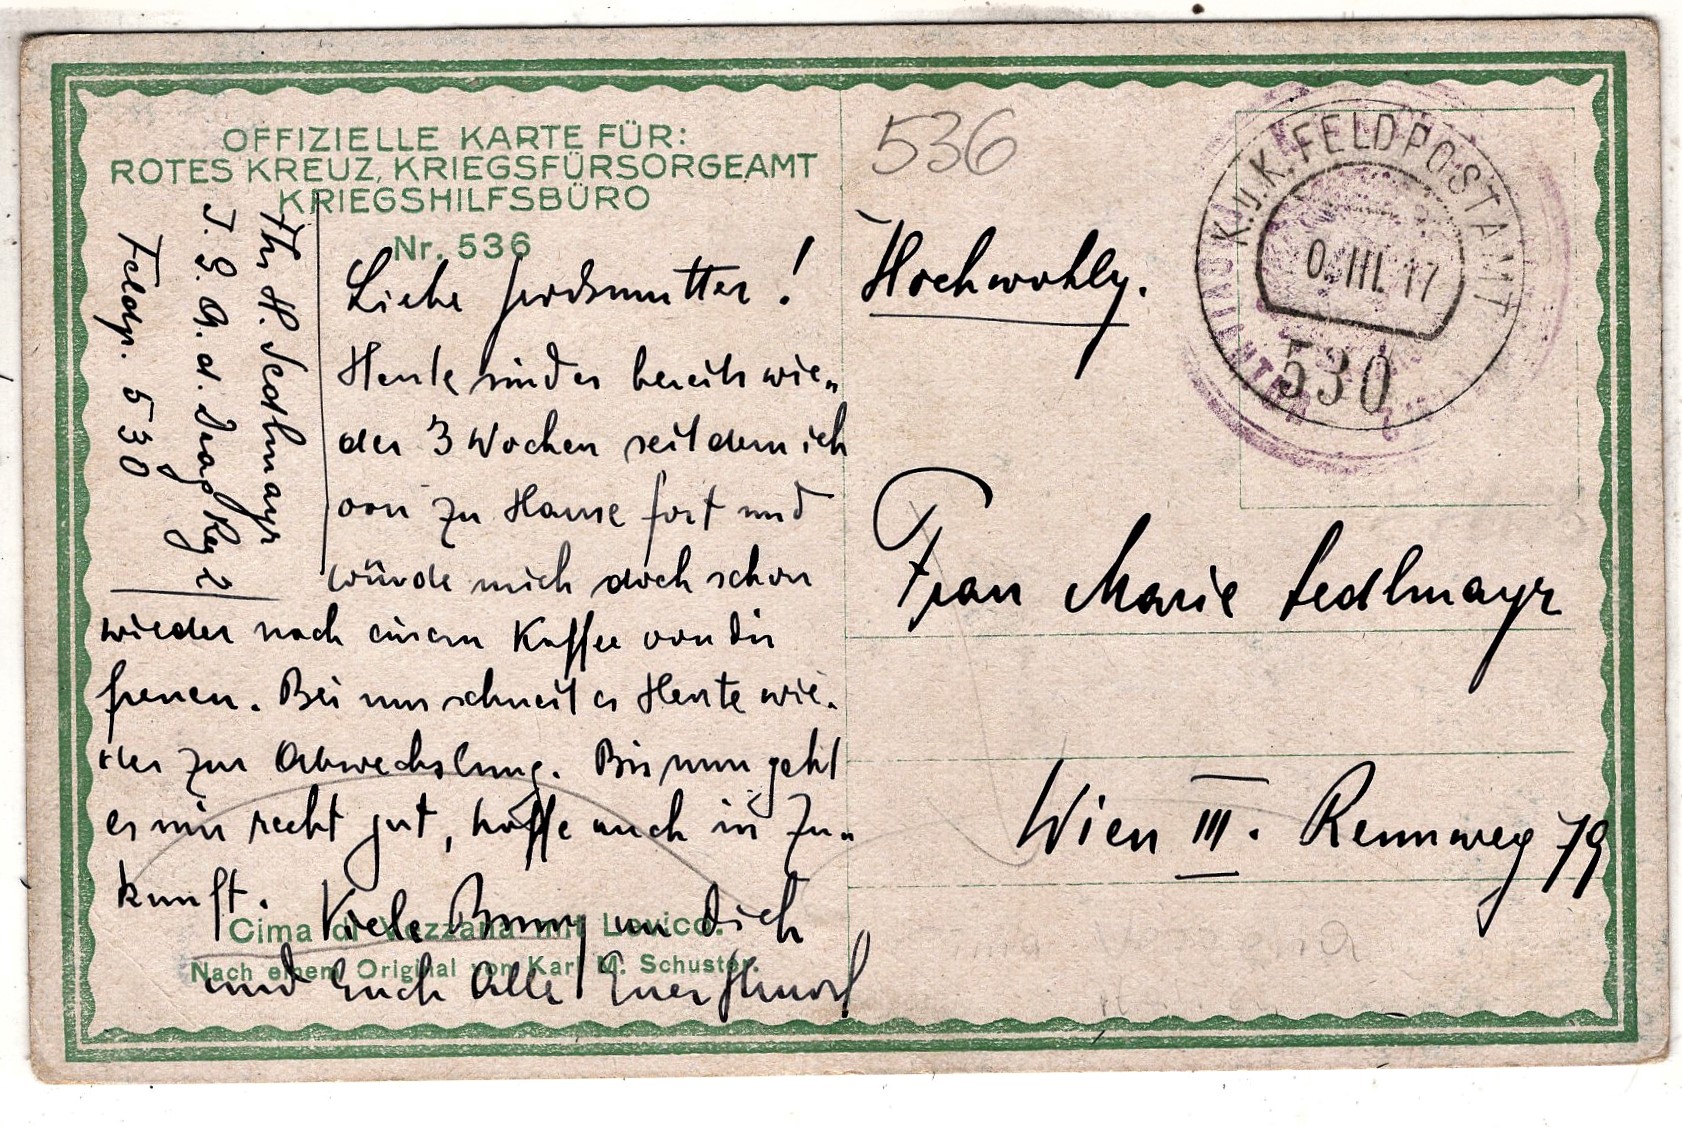 OFFIZIELLE KARTE FÜR:
ROTES KREUZ, KRIEGSFÜRSORGEAMT
KRIEGSHILFSBÜRO
Nr. 536
H. Sedlmayr
Reg 2
Feldp. 530
Liebe !
Heute sind es bereits wie„
der 3 Wochen seitdem ich
von zu Hause fort und
würde mich doch schon
wieder nach einem Kaffee von Dir
freuen. Bei uns schneit es Heute wie„
der zur Abwechslung. Bis nun geht
es mir recht gut, hoffe auch in Zu„
kunft. Viele an Dich
und Euch Alle Euer
Cima di Vezzana mit Levico.
Nach einem Original von Karl M. Schuster.
536
K.u.K. FELDPOSTAMT
III. 17
530
Hochwohlg.
Frau Marie Sedlmayr
Wien III. Rennweg 79